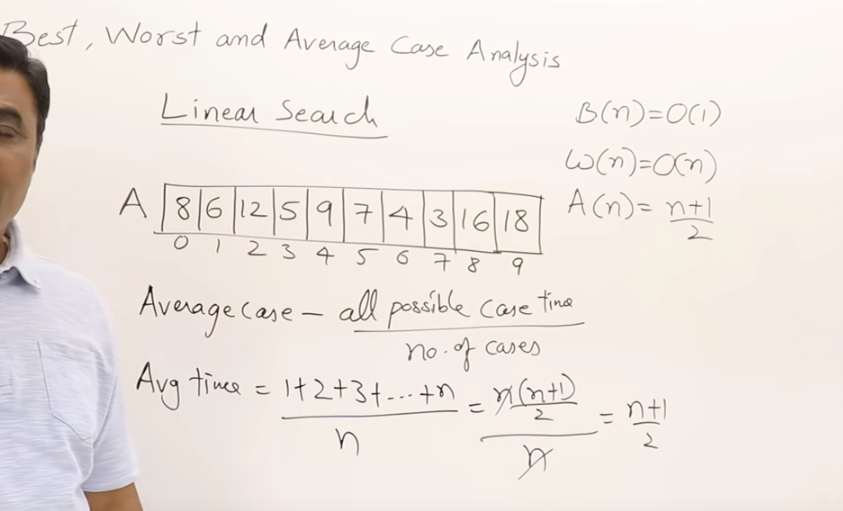 Best, Worst and Average Case Analysis
Linear Search
B(n)=O(1)
W(n)=O(n)
A(n)= n+1/2
A 8 6 12 5 9 7 4 3 16 18
0 1 2 3 4 5 6 7 8 9
Average case – all possible case time / no. of cases
Avg time = 1+2+3+...+n / n = n(n+1)/2 / n = n+1/2